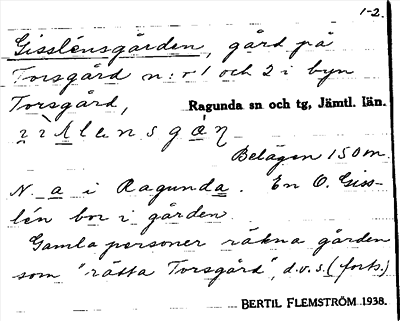 1-2.
Gisslénsgården, gård på
Torsgård n:r 1 och 2 i byn
Torsgård, Ragunda sn och tg, Jämtl. län.
Belägen 150 m.
N. a i Ragunda. En O. Giss-
lén bor i gården.
Gamla personer räkna gården
som "rätta Torsgård", d.v.s. (forts.)
BERTIL FLEMSTRÖM 1938.